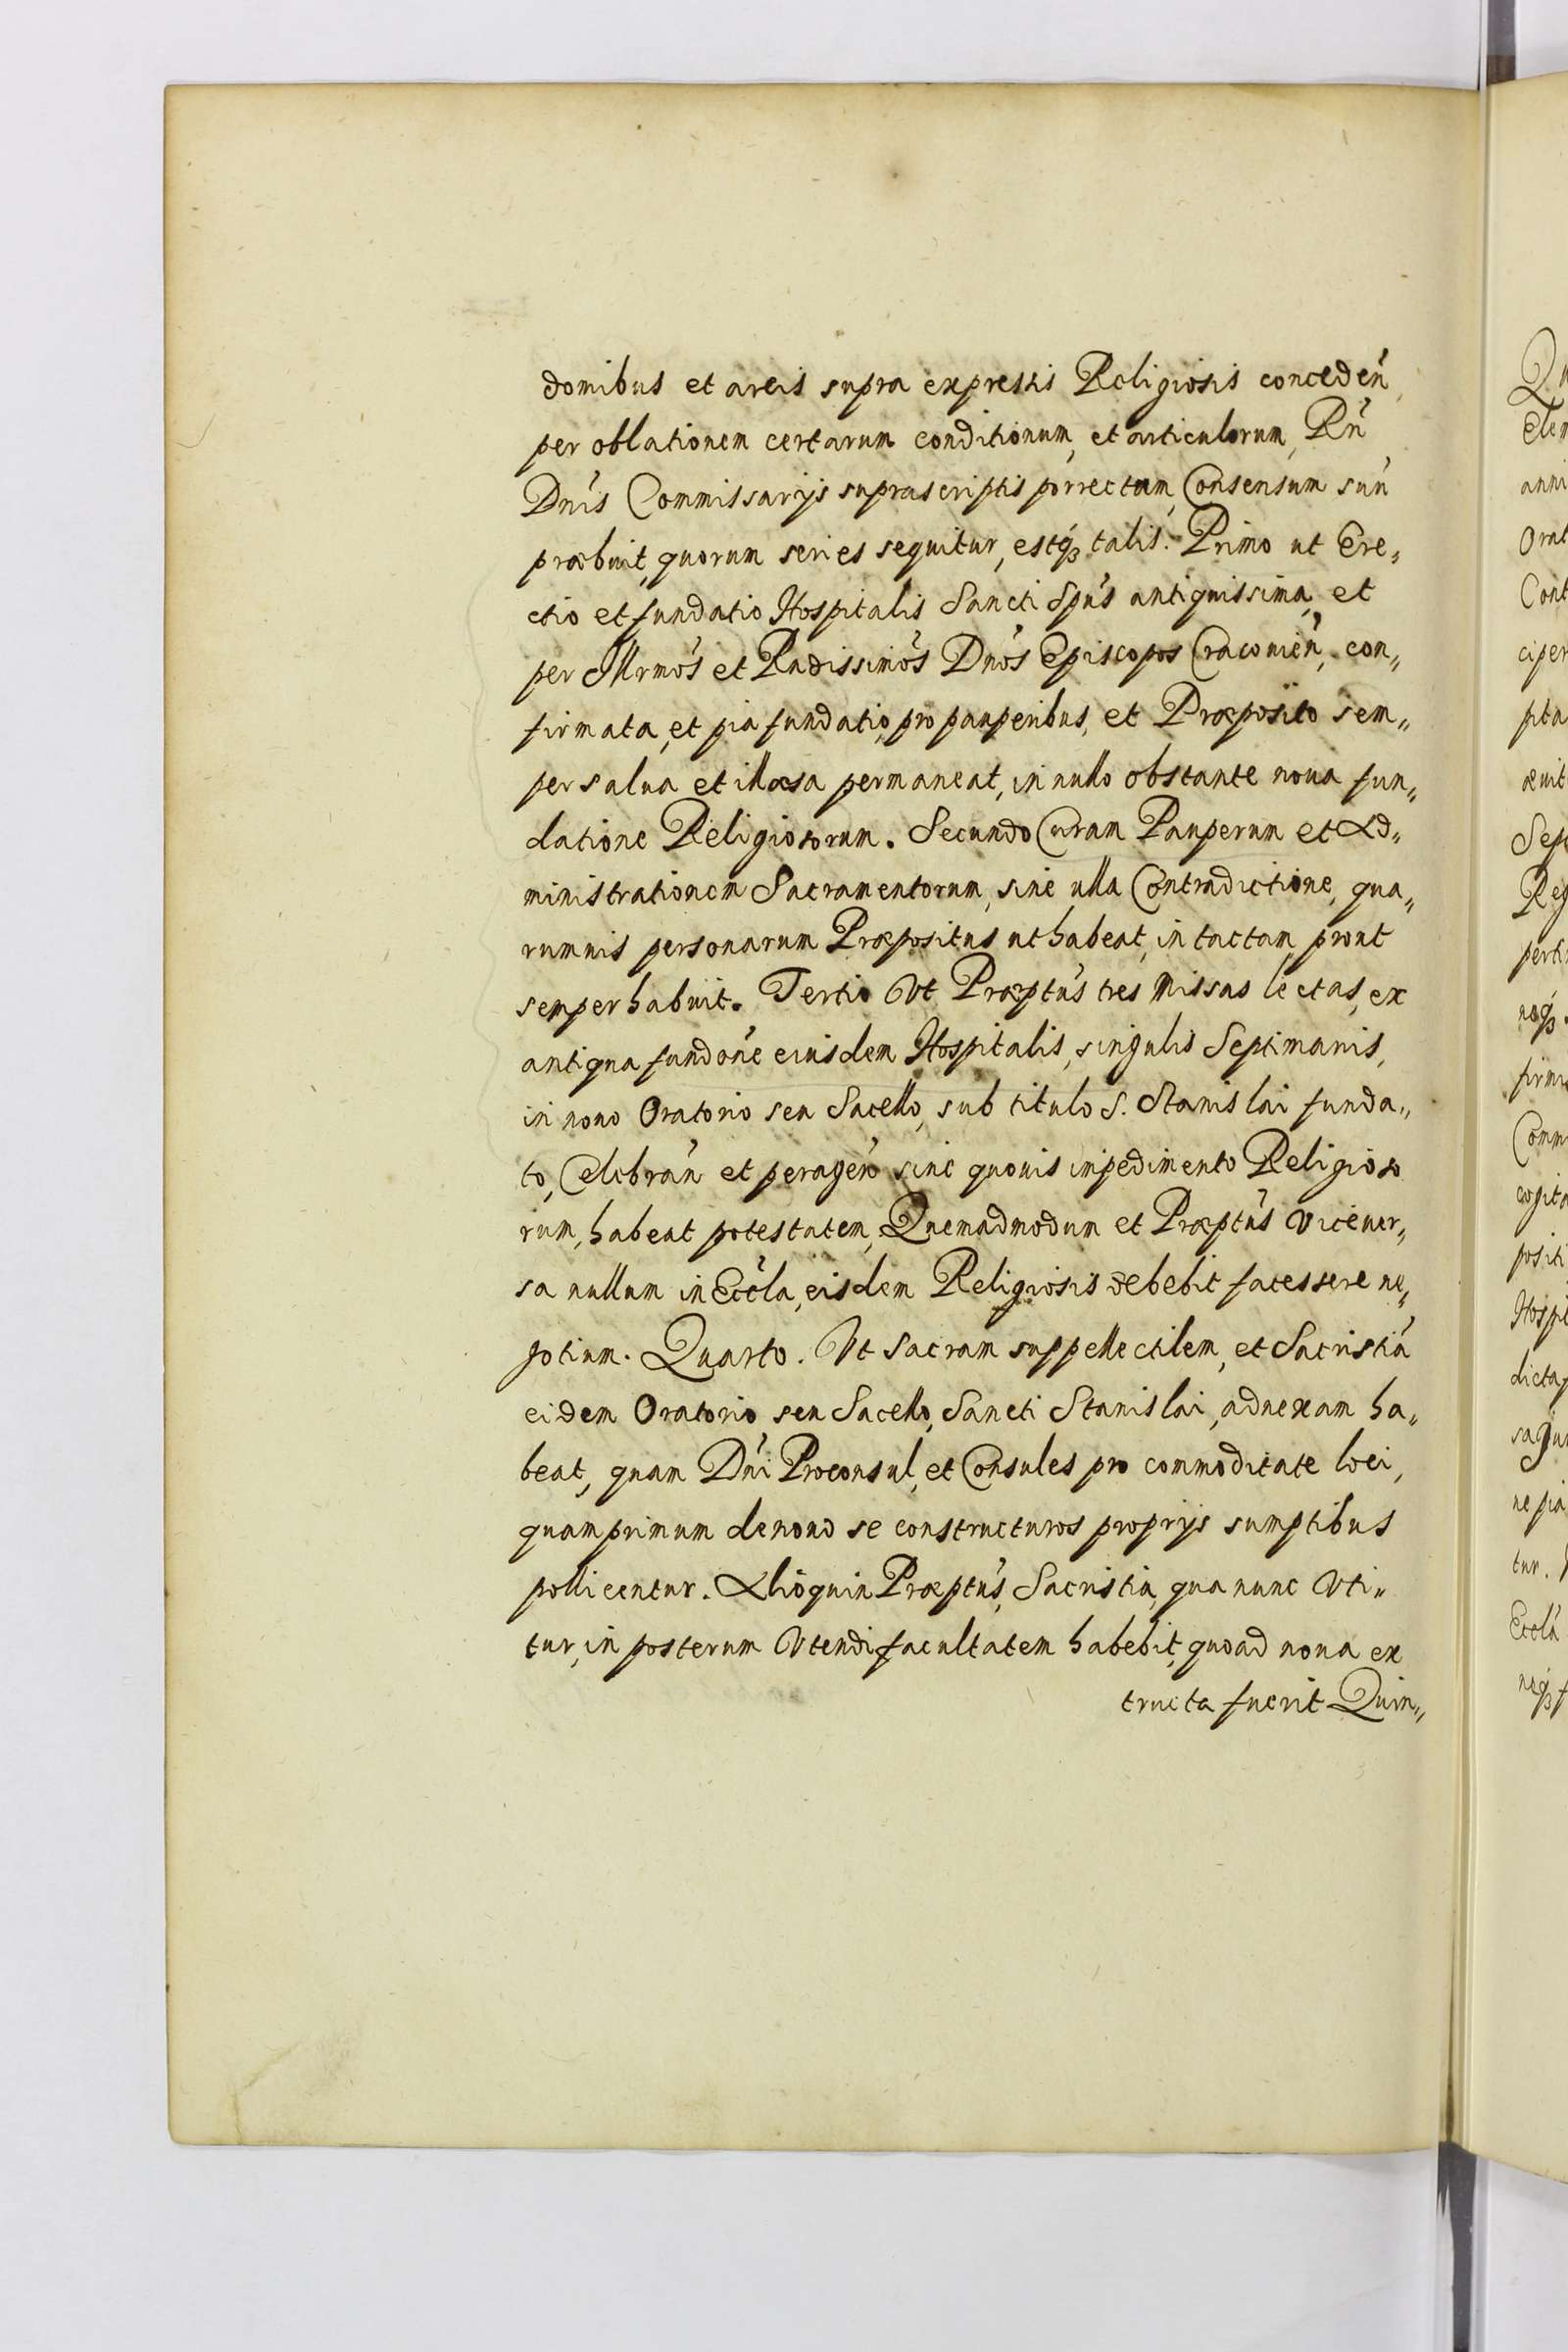 domibus et areis supra expressis Religiosis conceden̄,
per oblationem certarum conditionum, et articulorum, Rn̄
Dnis Commissarijs suprascriptis porrectam, Consensum suū
præbuit, quorum series sequitur, estq₃ talis. Primo ut Ere„
ctio et fundatio Hospitalis Sancti Spus antiquissima, et
per Illrmos et Rndissimos Dnos Episcopos Cracouien̄, con„
firmata, et pia fundatio, pro pauperibus, et Præposito sem„
per salua et illæsa permaneat, in nullo obstante noua fun„
datione Religiosorum. Secundo Curam Pauperum et Ad„
ministrationem Sacramentorum, sine ulla Contradictione, qua„
rumuis personarum Præpositus ut habeat, intactam, prout
semper habuit. Tertio Vt Præptus tres Missas lectas, ex
antiqua fundone eiusdem Hospitalis, singulis Septimanis,
in nouo Oratorio seu Sacello, sub titulo S. Stanislai funda„
to, Celebran̄ et peragen̄ sine quouis impedimento Religioso
rum, habeat potestatem, Quemadmodum et Præptus viceuer„
sa nullum in Eccla, eisdem Religiosis debebit facessere ne„
gotium. Quarto. Vt sacram suppellectilem, et Sacristiā
eidem Oratorio seu Sacello, Sancti Stanislai, adnexam ha„
beat, quam Dni Proconsul, et Consules pro commoditate loci,
quamprimum denouo se constructuros proprijs sumptibus
pollicentur. Alioquin Præptus, Sacristia, qua nunc Vti„
tur, in posterum Vtendi facultatem habebit, quoad noua ex
tructa fuerit Quin„